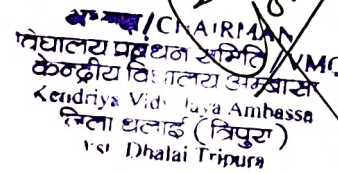 अध्यक्ष/CHAIRMAN
विद्यालय प्रबंधन समिति/VMC
केन्द्रीय विद्यालय अम्बासा
Kendriya Vidyalaya Ambassa
जिला धलाई (त्रिपुरा)
Dhalai Tripura